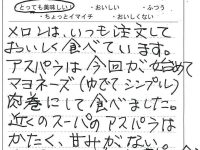 とっても美味しい ・おいしい ・ふつう
・ちょっとイマイチ ・おいしくない
メロンは、いつも注文して
おいしく食べています。
アスパラは今回が始めて
マヨネーズ(ゆでてシンプル)
肉巻にして食べました。
近くのスーパーのアスパラは
かたく、甘みがない